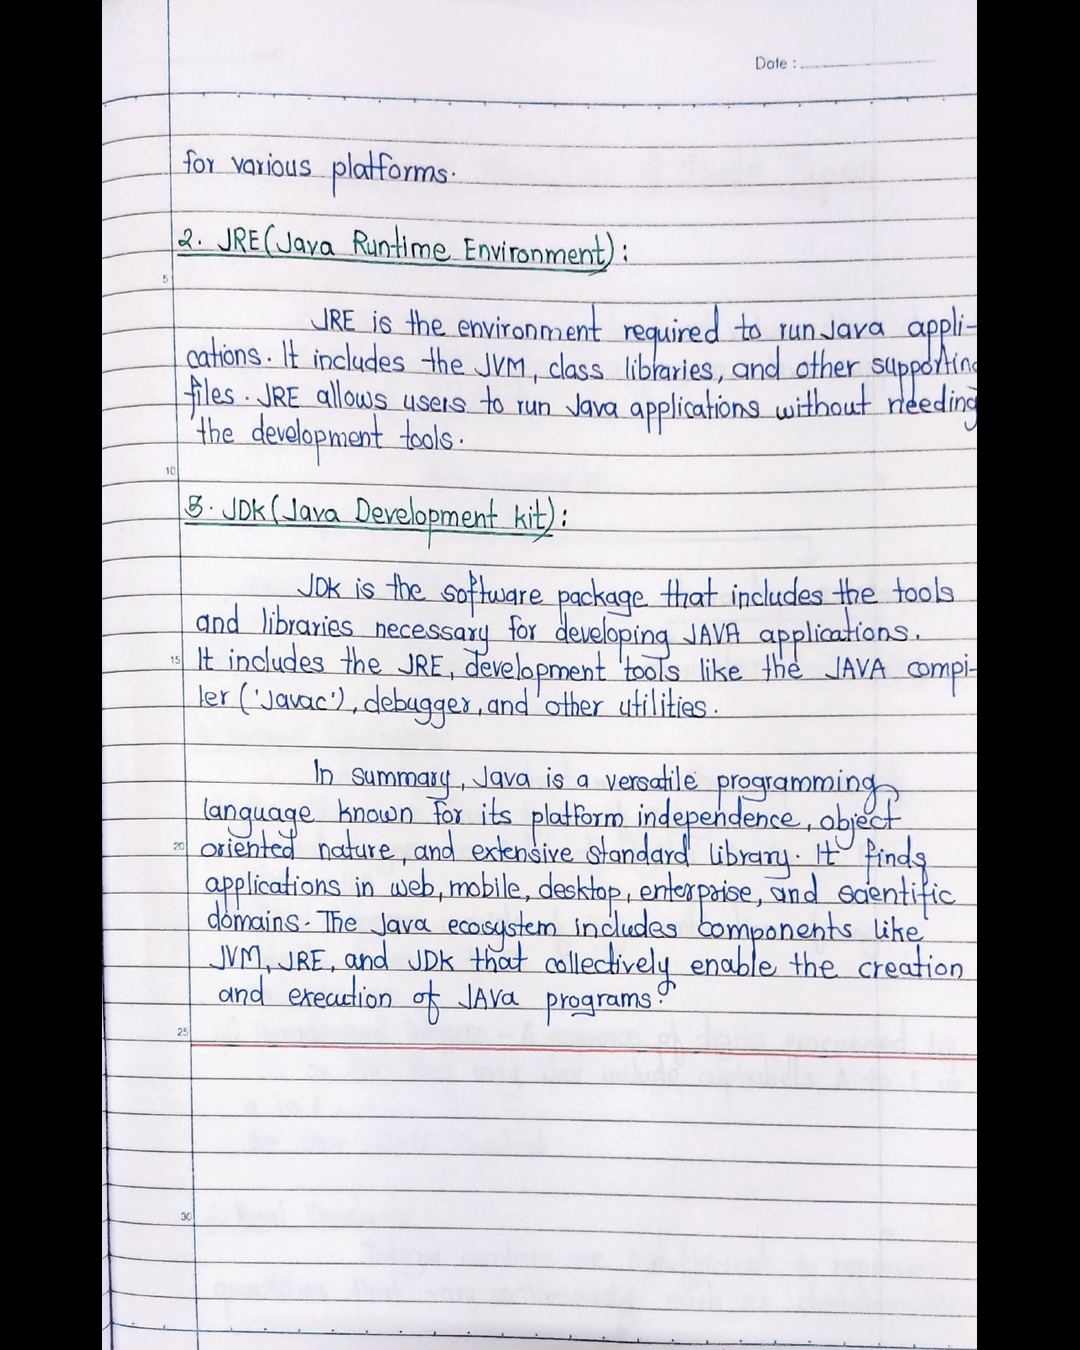 Date :
for various platforms.
2. JRE(Java Runtime Environment):
5
JRE is the environment required to run Java appli-
cations. It includes the JVM, class libraries, and other supporting
files. JRE allows users to run Java applications without needing
the development tools.
10
3. JDK(Java Development kit):
JDK is the software package that includes the tools
and libraries necessary for developing JAVA applications.
15 It includes the JRE, development tools like the JAVA compi-
ler ('Javac'), debugger, and other utilities.
In summary, Java is a versatile programming
language known for its platform independence, object
20 oriented nature, and extensive standard library. It finds
applications in web, mobile, desktop, enterprise, and scientific
domains. The Java ecosystem includes components like
JVM, JRE, and JDK that collectively enable the creation
and execution of JAVA programs.
25
30